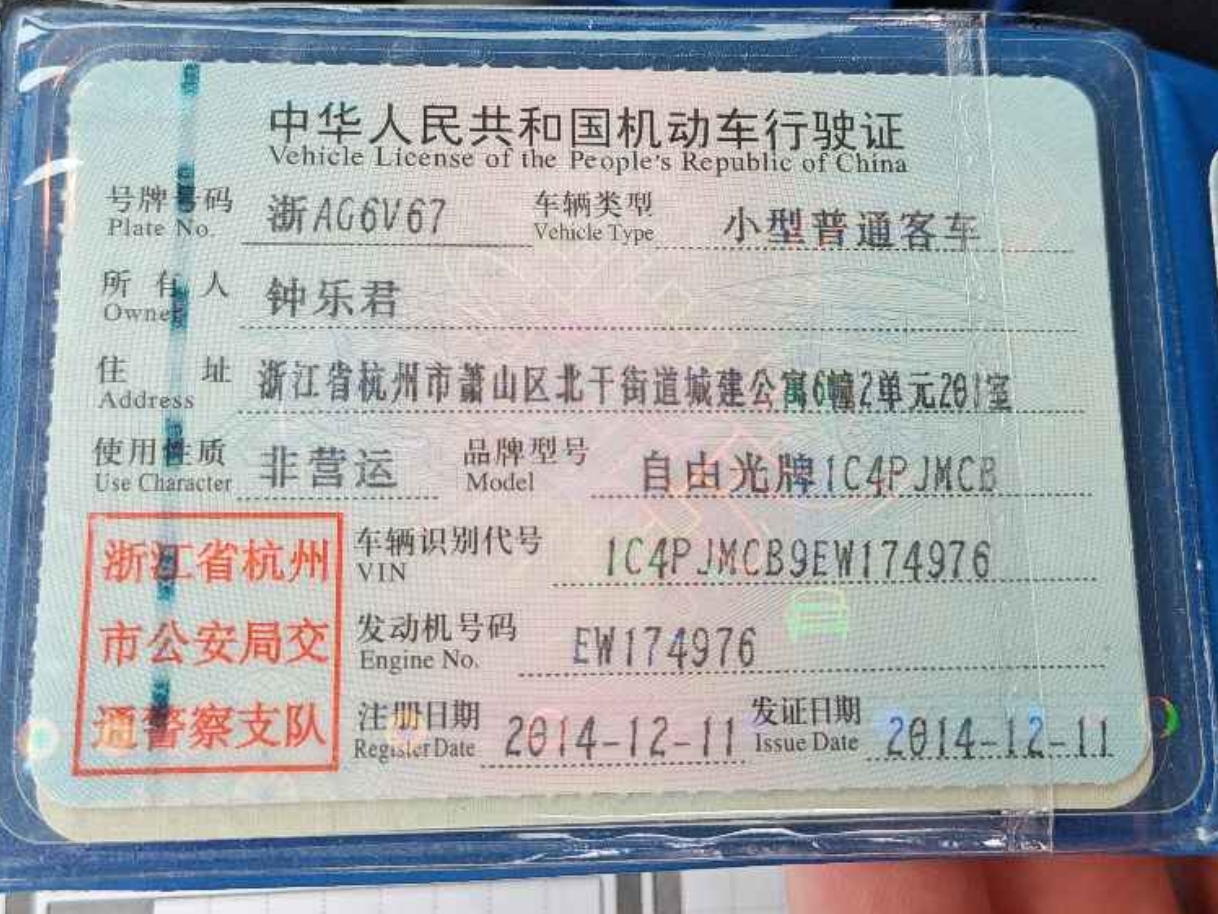 中华人民共和国机动车行驶证
Vehicle License of the People's Republic of China
号牌号码 浙AG6V67 车辆类型 小型普通客车
Plate No. Vehicle Type
所有人 钟乐君
Owner
住址 浙江省杭州市萧山区北干街道城建公寓6幢2单元201室
Address
使用性质 非营运 品牌型号 自由光牌1C4PJMCB
Use Character Model
浙江省杭州
市公安局交
通警察支队
车辆识别代号 1C4PJMCB9EW174976
VIN
发动机号码 EW174976
Engine No.
注册日期 2014-12-11 发证日期 2014-12-11
Register Date Issue Date